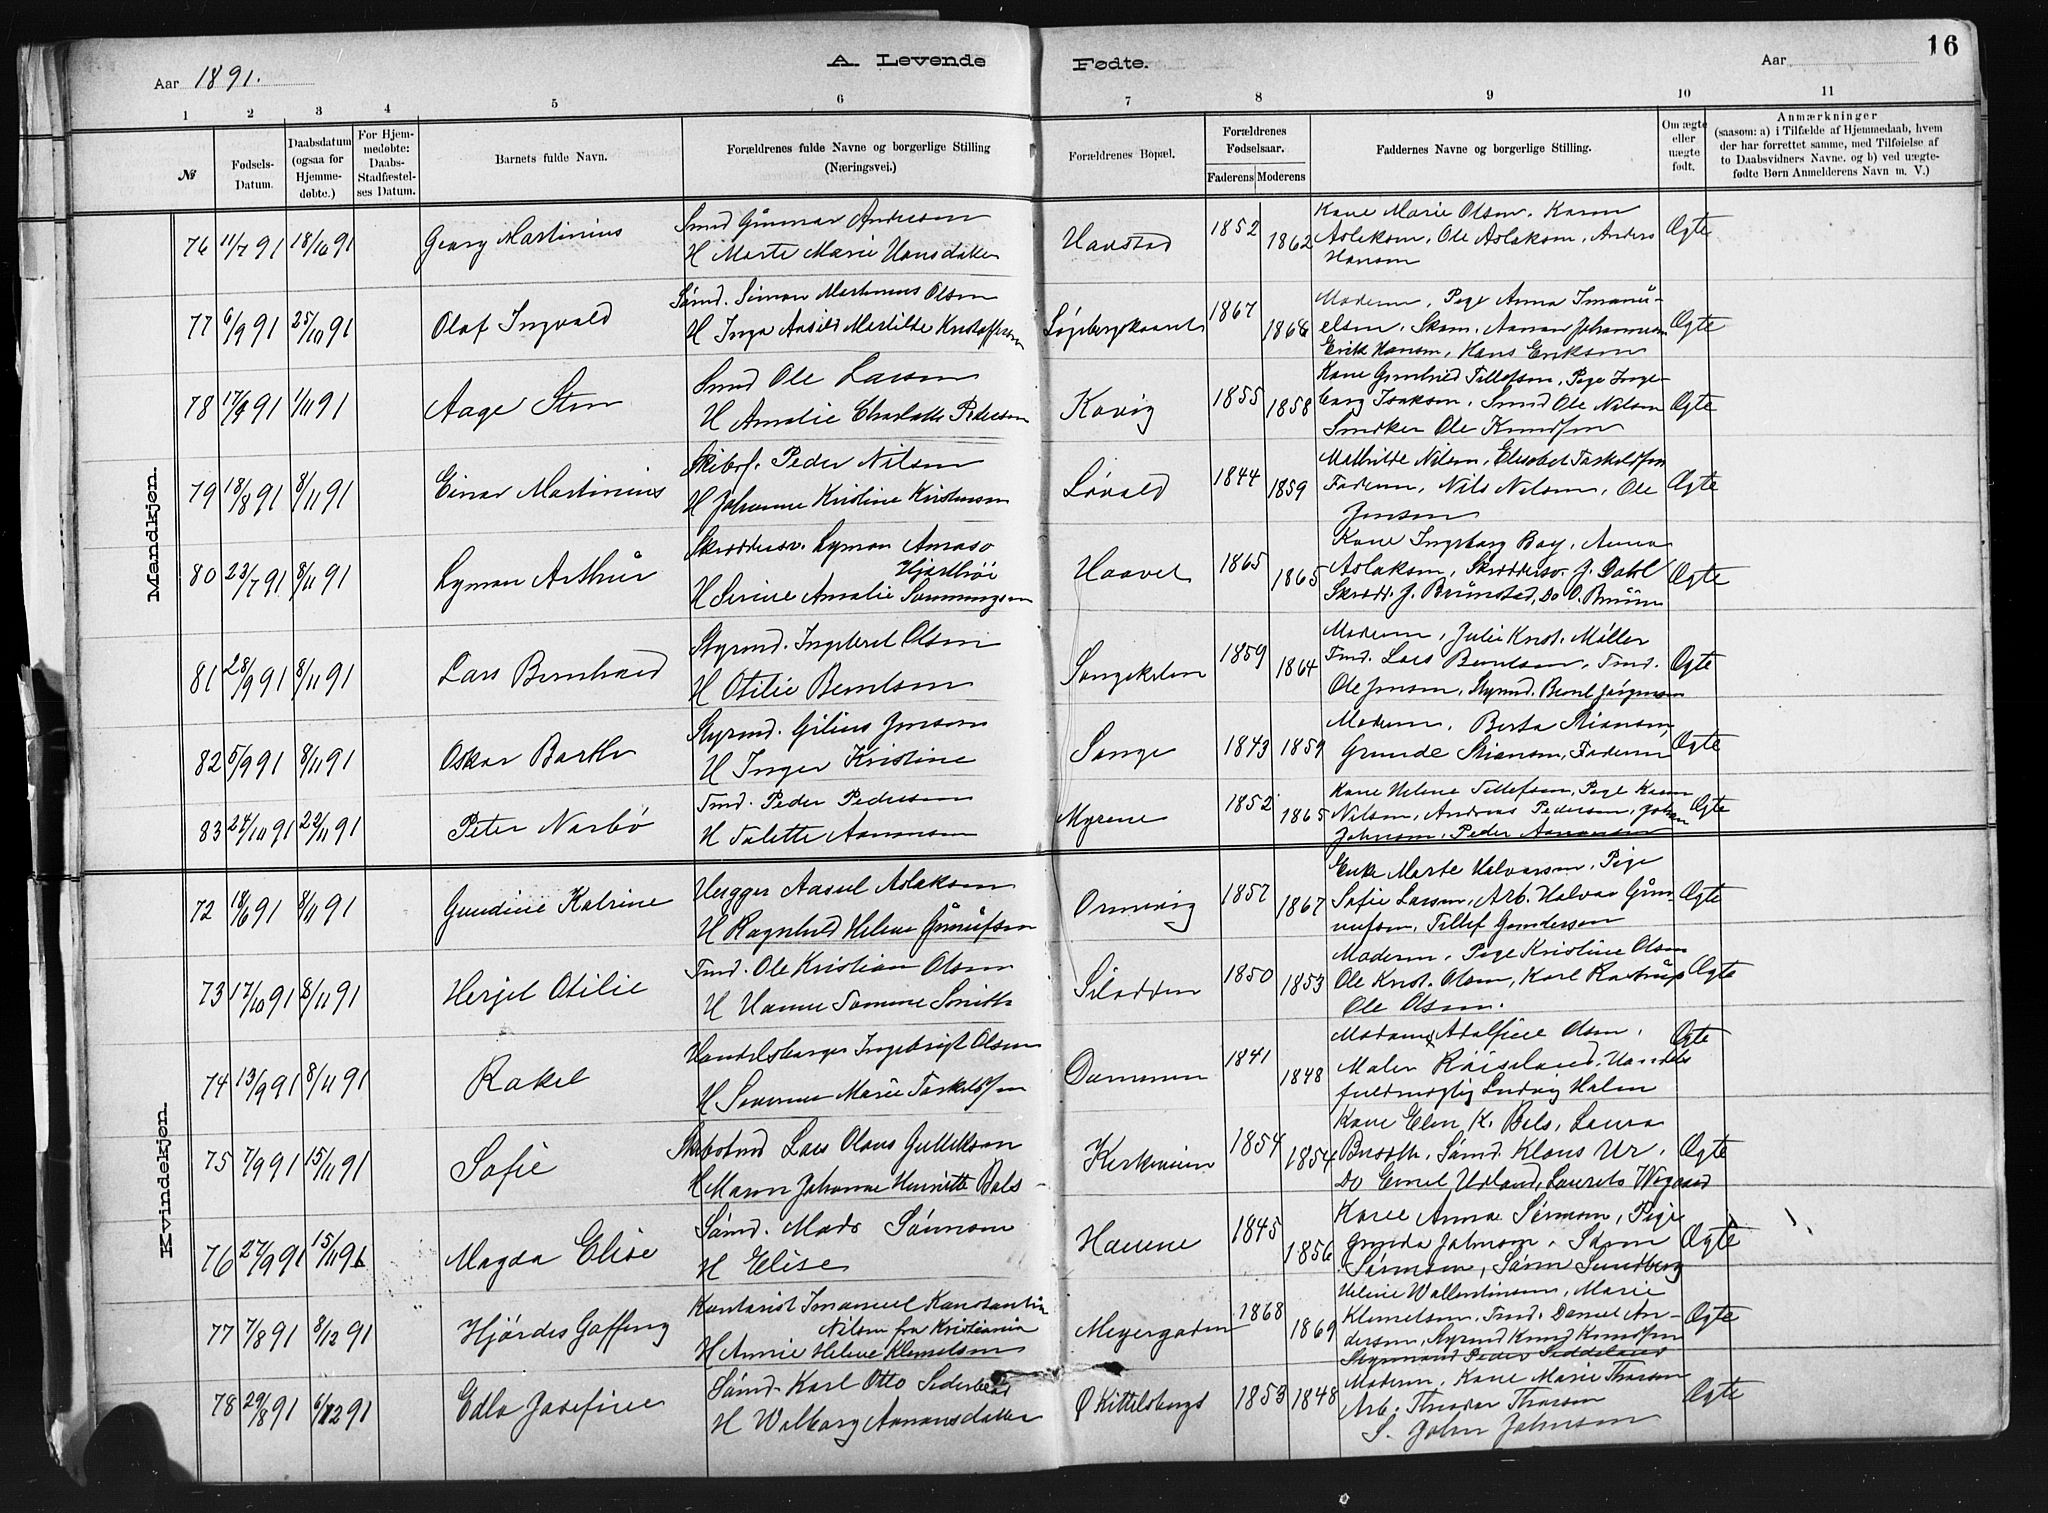 Aar 1891.
A. Levende Fødte.
Aar
16
1 2 3 4 5 6 7 8 9 10 11
№
Fødsels-Datum.
Daabsdatum (ogsaa for Hjemme-døbte.)
For Hjem-medøbte: Daabs-Stadfæstel-ses Datum.
Barnets fulde Navn.
Forældrenes fulde Navne og borgerlige Stilling (Næringsvei.)
Forældrenes Bopæl.
Forældrenes Fødselsaar.
Faderens Moderens
Faddernes Navne og borgerlige Stilling.
Om ægte eller uægte født.
Anmærkninger
(saasom: a) i Tilfælde af Hjemmedaab, hvem
der har forrettet samme, med Tilføielse af
to Daabsvidners Navne. og b) ved uægte-
fødte Børn Anmelderens Navn m. V.)
Mandkjøn.
76 11/7 91 18/10 91 Georg Martinius
Smed Gunnar Andersen
H Marte Marie Hansdatter
Havstad 1852 1862
Kone Marie Olsen, Karen
Aslaksen, Ole Aslaksen, Anders
Hansen
Ægte
77 6/9 91 25/10 91 Olaf Ingvald
Sømd. Simon Martinus Olsen
H Inga Matilde Kristoffersen
1867
Moderen, Pige Anna Imanu-
elsen, Aanon Johannesen
Erik Hansen, Hans Eriksen
Ægte
78 91 1/11 91 Aage Sten
Smed Ole Larsen
H Amalie Charlotte Pedersen
Kovig 1855 1858
Kone Gunhild Tellefsen, Pige Inge-
borg Isaksen, Smed Ole Nilsen
Ole Knudsen
Ægte
79 18/8 91 8/11 91 Einar Martinius
Peder Nilsen
H Johanne Kristine Kristensen
Løvold 1844 1859
Mathilde Nilsen, Elisabet Taskildsen
Faderen, Nils Nilsen, Ole
Jensen
Ægte
80 23/7 91 8/11 91 Lyman Arthur
Skræddersv. Lyman
H Serine Amalie
Haavet 1865 1865
Kone Ingeborg Boy, Anna
Aslaksen, Skræddersv. J. Dahl
Skrædd. J. Brunstad, Do O. Bruun
Ægte
81 28/9 91 8/11 91 Lars Bernhard
Styrmd. Ingebret Olsen
H Otilie Berntsen
Songekilen 1859 1864
Moderen, Julie Krist. Møller
Tmd. Lars Berntsen, Tmd.
Ole Jensen, Styrmd. Bernt Jørgensen
Ægte
82 5/9 91 8/11 91 Oskar Barth
Styrmd. Gilius Jensen
H Inger Kristine
Songe 1843 1859
Moderen, Berta Stiansen,
Grunde Stiansen, Faderen
Ægte
83 24/10 91 22/11 91 Peter Narbø
Tmd. Peder Pedersen
H Talette Aanonsen
Myrene 1852 1865
Kone Helene Tellefsen, Pige Karen
Nilsen, Andreas Pedersen, Johan
Johnsen, Peder Aanonsen
Ægte
Kvindekjøn.
72 18/6 91 8/11 91 Gundine Katrine
Aasul Aslaksen
H Ragnhild Helene Gunnufsen
Ormevig 1857 1867
Enke Marte Halvorsen, Pige
Sofie Larsen, Arb. Halvor Gun-
nufsen, Tellef Gundersen
Ægte
73 17/10 91 8/11 91 Herjel Otilie
Tmd. Ole Kristian Olsen
H Hanne Tomine Smith
Siladden 1850 1853
Moderen, Pige Kristine Olsen
Ole Krist. Olsen, Karl Rastrup
Ole Olsen.
Ægte
74 13/9 91 8/11 91 Rakel
Handelsborger Ingebrigt Olsen
H Severine Marie Taskildsen
Dammen 1841 1848
Madame Adolfine Olsen,
Maler Røiseland, Handels
fuldmægtig Ludvig Holm
Ægte
75 7/9 91 15/11 91 Sofie
Lars Olaus Gulliksen
H Maren Johanne Henriette Bols
1854 1854
Kone Elen K. Bols, Laura
Sømd Klaus Ur,
Do Emil Urland, Laurits
Ægte
76 27/9 91 15/11 91 Magda Elise
Sømd. Mads Sørensen
H Elise
Havene 1845 1856
Kone Anna Sørensen, Pige
Gunda Johnsen, Søren
Sørensen, Søren Sundberg
Ægte
77 7/8 91 8/12 91 Hjørdes Gaffeng
Kontorist Imanuel Konstantin
Nilsen fra Kristiania
H Annie Helene Klemetsen
Meyergaden 1868 1869
Helene Wallentinsen, Marie
Klemetsen, Tmd. Daniel An-
dersen, Styrmd Knud Knudsen
Styrmand Peder
Ægte
78 29/8 91 6/12 91 Edla Josefine
Sømd. Karl Otto
H Walborg Aanonsdatter
Ø Kittelsbugt 1853 1848
Moderen, Kone Marie Thorsen
Arb. Theodor Thorsen
S. John Johnsen
Ægte